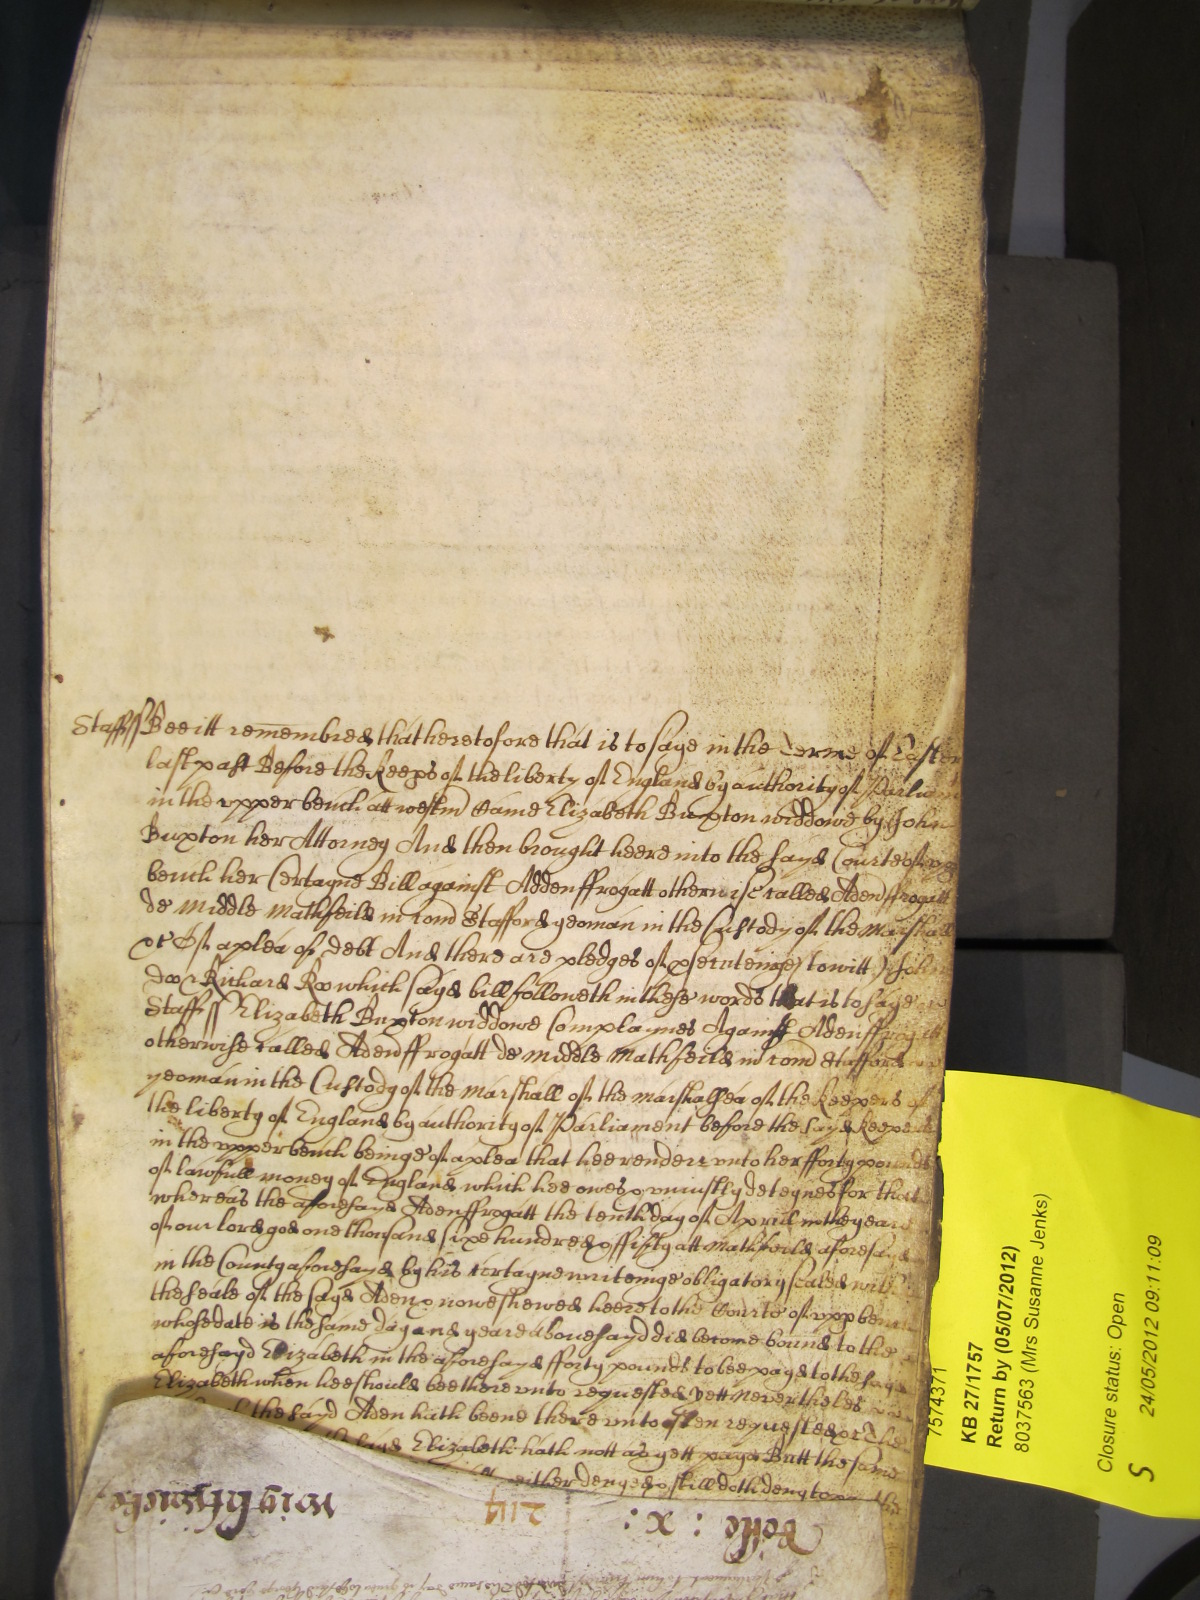 Staff ss Bee itt remembred that heretofore that is to saye in the Terme of Easter
last past Before the keeps of the liberty of England by authority of Parliam
in the vpper bench att westm Came Elizabeth Buxton widdowe by John
Buxton her Attorney And then brought heere into the sayd Courte of vpp
bench her Certayne Bill against Adden ffrogatt otherwise called Aden ffrogatt
de Middle Mathfeild in Com Stafford yeoman in the Custody of the Marshall
&c Of a plea of debt And there are pledges of psecuteinge to witt John
Doo & Richard Roo which sayd bill followeth in these words that is to saye
Staff ss Elizabeth Buxton widdowe Complaynes Against Aden ffrogatt
otherwise called Aden ffrogatt de Middle Mathfeild in Com Stafford
yeoman in the Custody of the Marshall of the Marshalsea of the keepers of
the liberty of England by authority of Parliament before the sayd keepers
in the vpper bench beinge of a plea that hee render vnto her fforty pounds
of lawfull money of England which hee owes & vniustly deteynes for that
whereas the aforesayd Aden ffrogatt the tenth day of Aprill in the yeare
of our lord god one thousand sixe hundred & fifty att Mathfeild aforesayd
in the County aforesayd by his certayne writeinge obligatory sealed with
the seale of the sayd Aden & nowe shewed heere to the Courte of vpp bench
whose date is the same day and yeare abovesayd did become bound to the
aforesayd Elizabeth in the aforesayd fforty pounds to bee payd to the sayd
Elizabeth when hee should bee therevnto requested Yett Neverthelес
the sayd Aden hath beene therevnto often requested &c The
the sayd Elizabeth hath nott as yett payd Butt the same
either denyed & still doth deny to
wightwicke
2114
Votte : x :
7574371
KB 27/1757
Return by (05/07/2012)
8037563 (Mrs Susanne Jenks)
Closure status: Open
24/05/2012 09:11:09
S